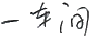 一车间